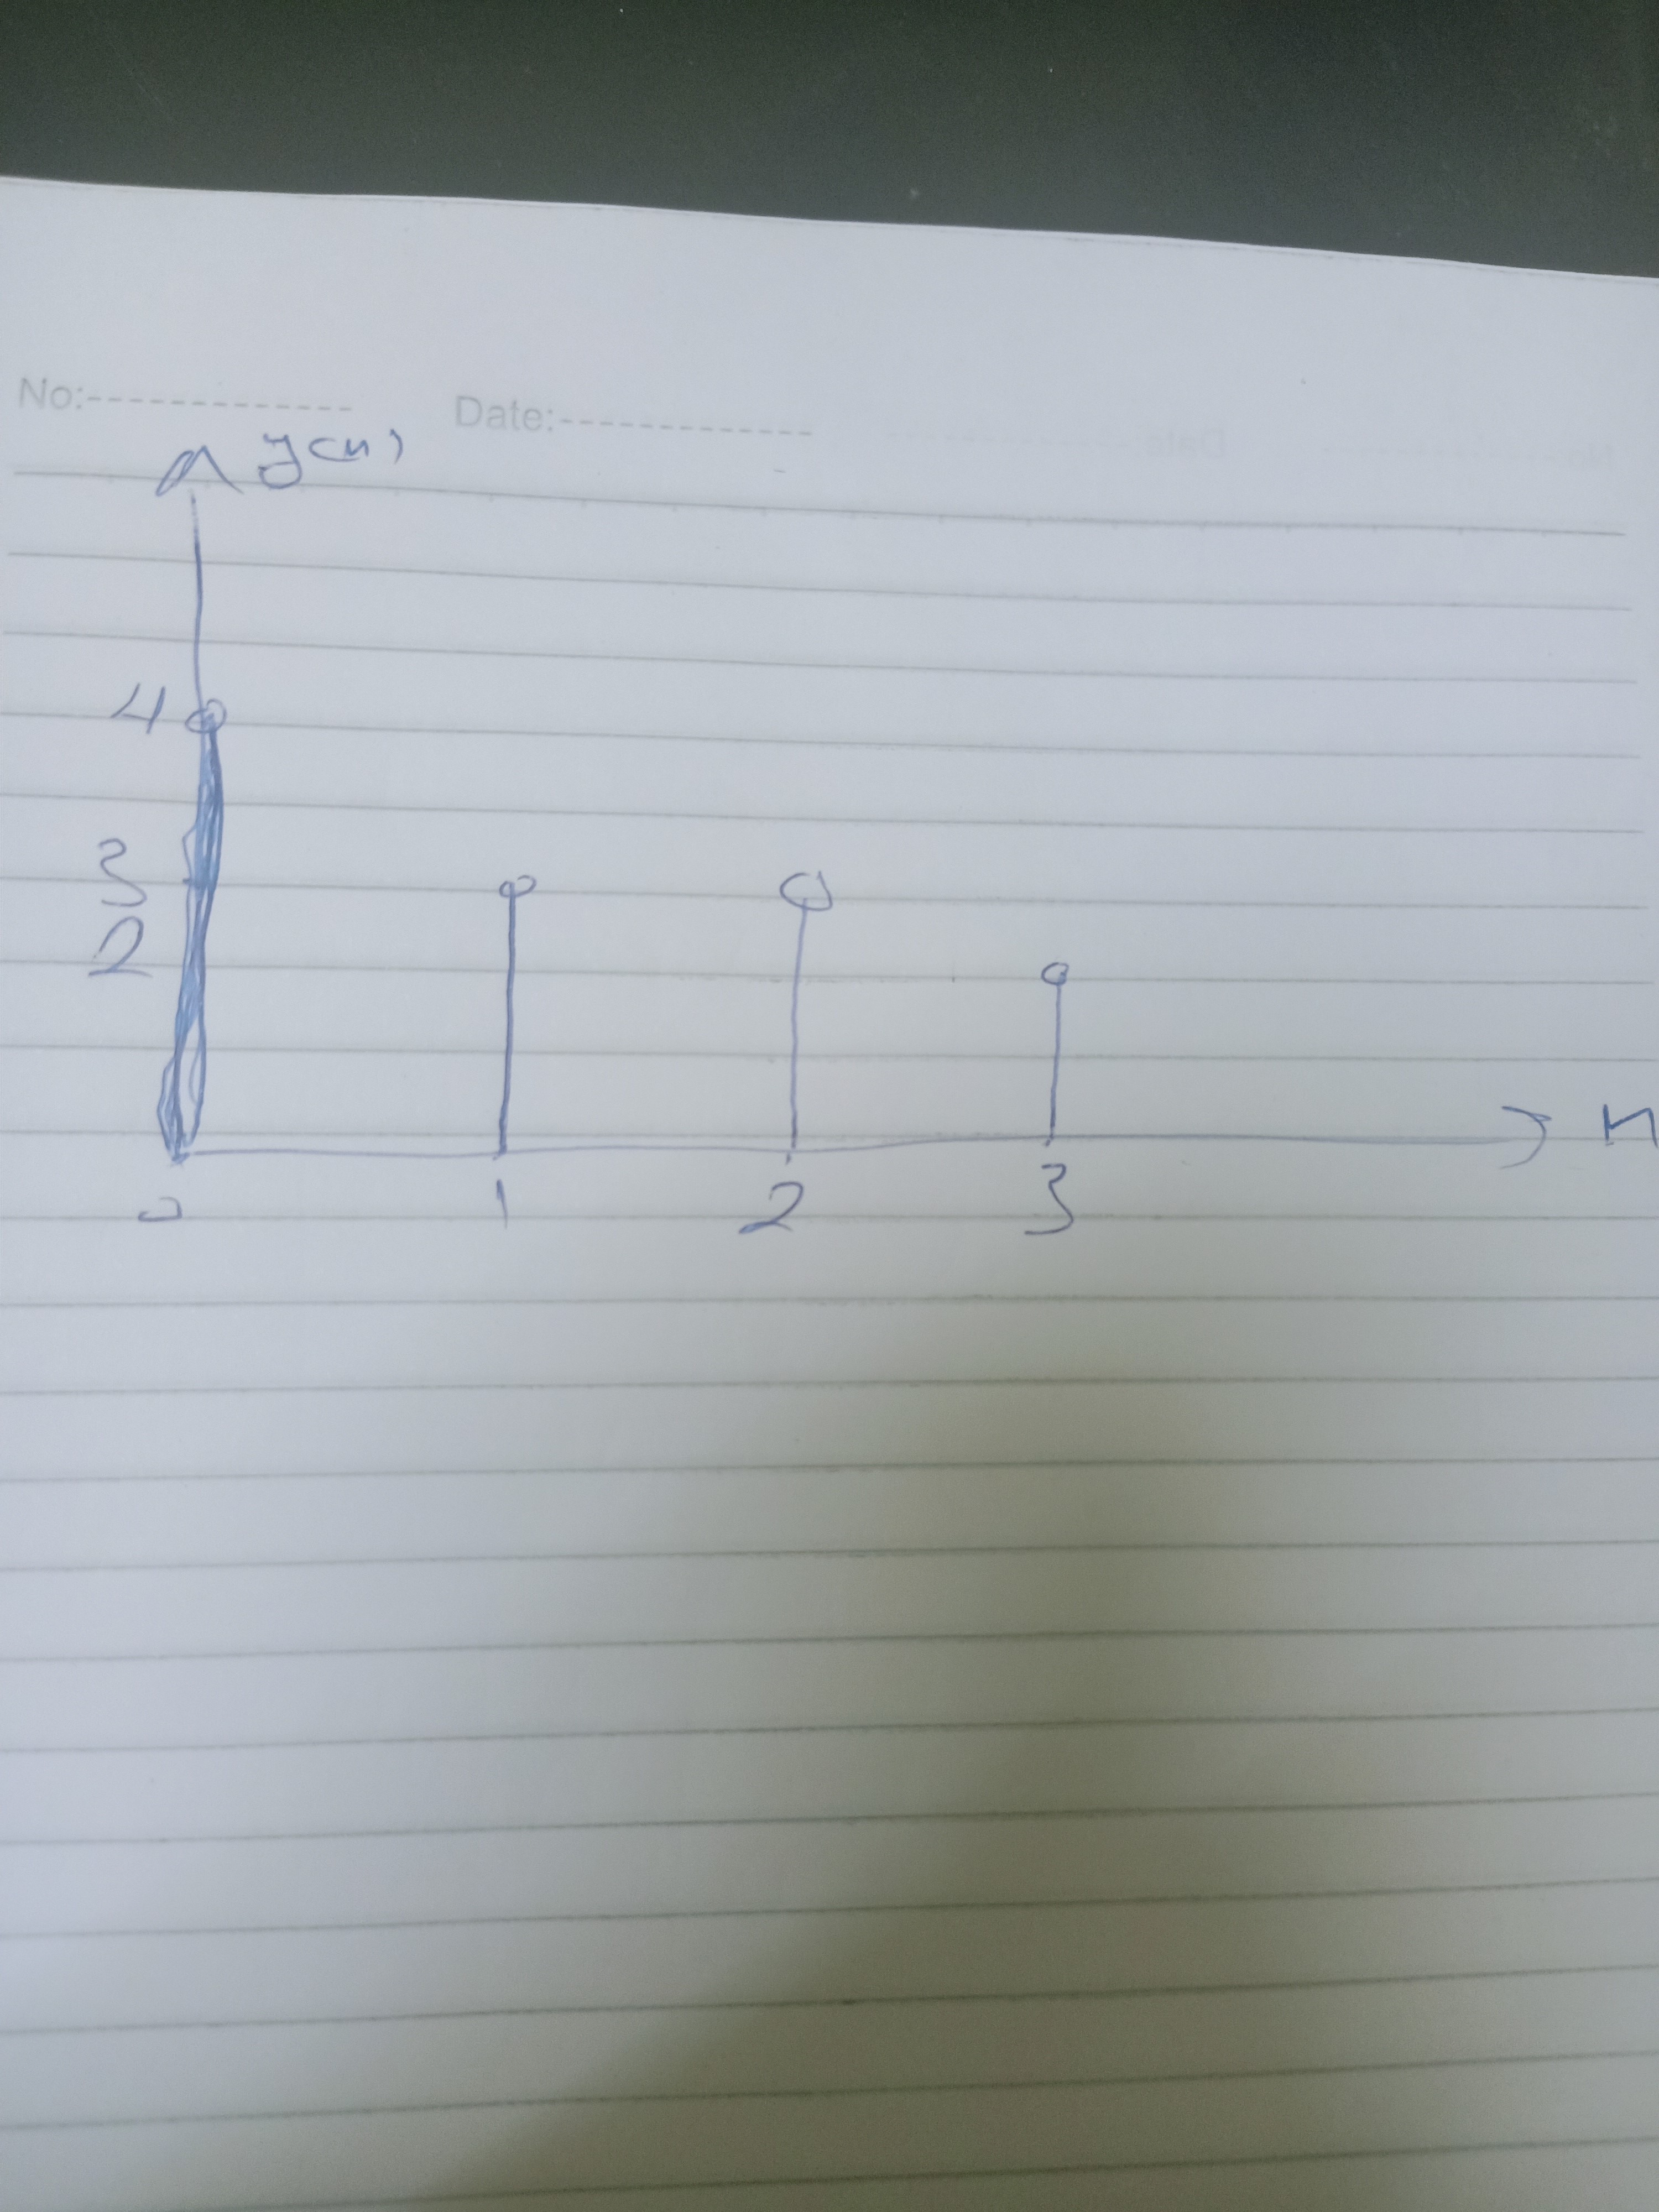 No:------------- Date:-------------
y(n)
4
3
2
0 1 2 3 n